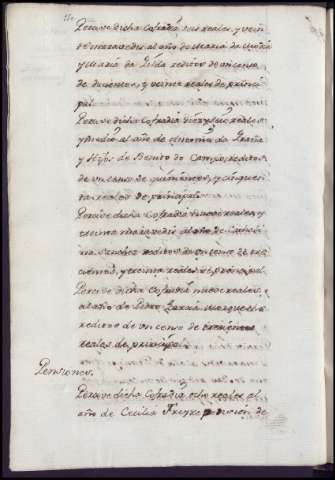 Perzive dicha Cofradia seis reales, y vein
te maravedis al año de Maria de
y Maria de reditos de un censo
de ducientos, y veinte reales de princi
pal.
Perzive dicha Cofradia diez y seis reales,
y medio al año de
y Hijos de Benito do Campo, reditos
de un censo de quinientos, y cinquen
ta reales de principal.
Perzive dicha Cofradia nueve reales, y
veinte maravedis al año de Catali
na Sanchez reditos de un censo de tres
cientos, y veinte reales de principal.
Perzive dicha Cofradia nueve reales,
al año de Pedro
reditos de un censo de trescientos
reales de principal.
Pensiones.
Perzive dicha Cofradia ocho reales al
año de Cecilia Freyre pension de